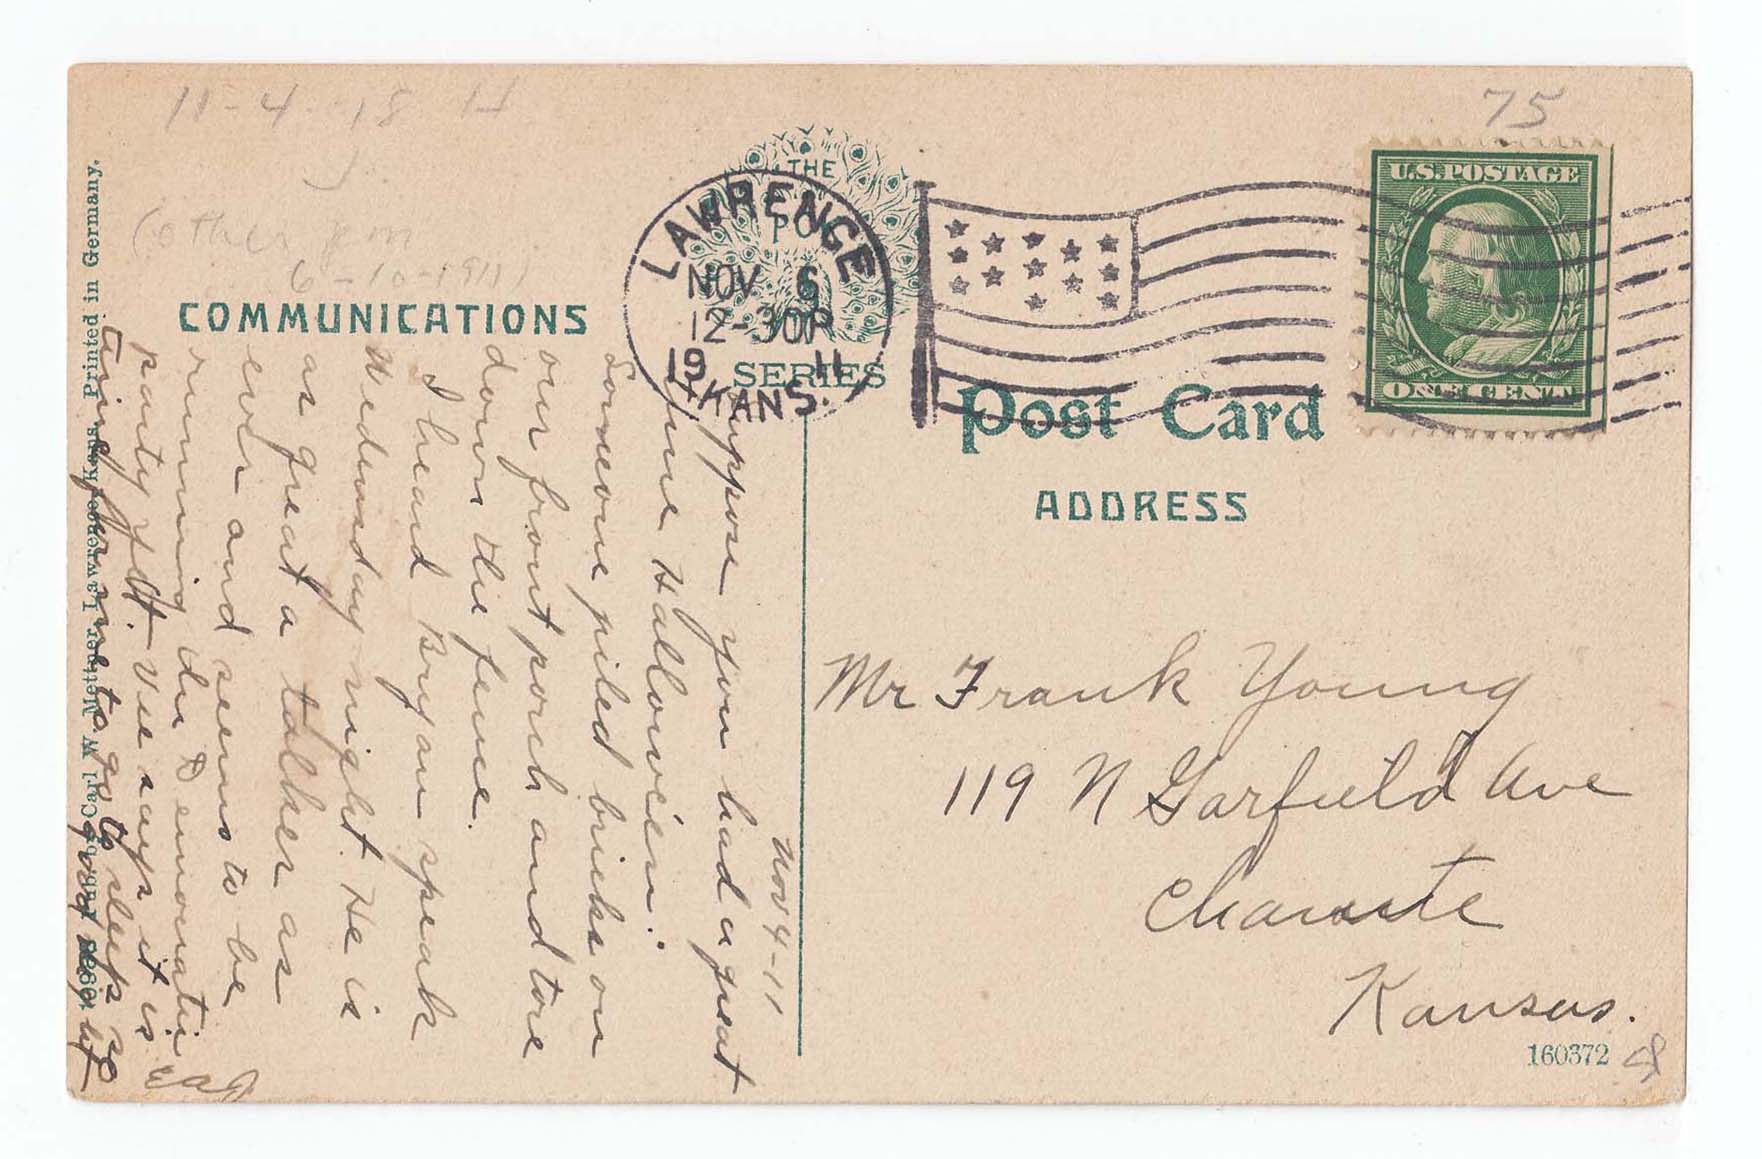 11-4-18 H
75
(other pm
6-10-1911)
THE
PO
SERIES
LAWRENCE
NOV 6
12-30P
19 11
KANS.
U.S. POSTAGE
ONE CENT
COMMUNICATIONS
Post Card
ADDRESS
Nov 4-11
I suppose you had a great
time Hallowe'en.
Someone piled bricks on
our front porch and tore
down the fence.
I heard Bryan speak
Wednesday night. He is
as great a talker as
ever and seems to be
running the Democratic
party yet. Vee says it is
time for me to go to sleep so
good
EAJ
Mr Frank Young
119 N Garfield Ave
Chanute
Kansas.
160372
Pub. by Carl W. Mettner, Lawrence, Kans. Printed in Germany.